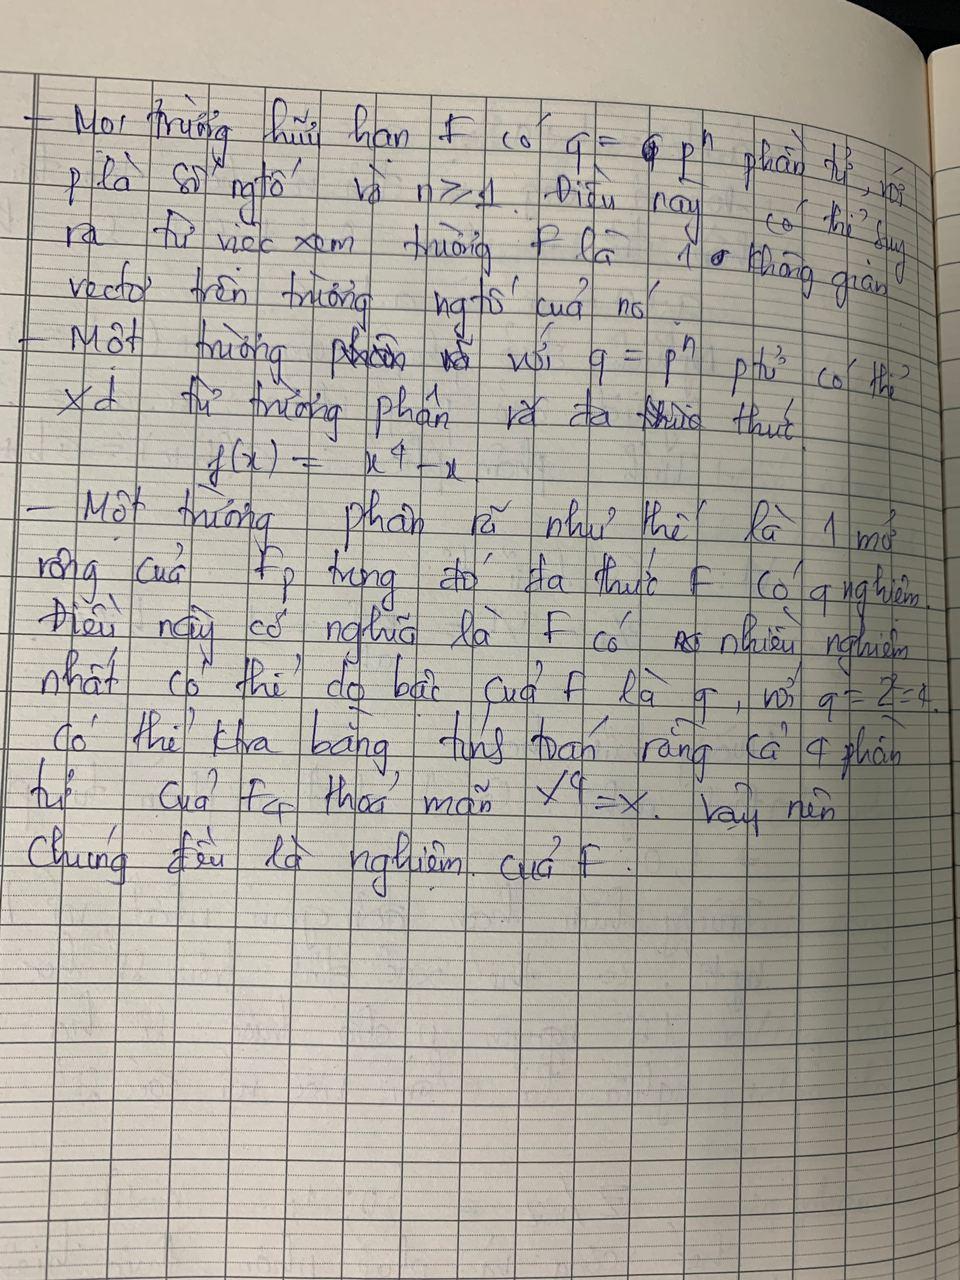 - Mọi trường hữu hạn F có q = pⁿ phần tử, với
p là số ngtố và n ≥ 1. Điều này có thể suy
ra từ việc xem trường F là 1 không gian
vectơ trên trường ngtố của nó.
- Một trường với q = pⁿ ptử có thể
xd từ trường phân rã đa thức
f(x) = x^q - x
- Một trường phân rã như thế là 1 mở
rộng của Fp trong đó đa thức F có q nghiệm.
Điều này có nghĩa là F có nhiều nghiệm
nhất có thể do bậc của F là q, với q = 2² = 4.
Có thể ktra bằng tính toán rằng cả 4 phần
tử của F₄ thoả mãn X⁴ = X. Vậy nên
chúng đều là nghiệm của F.